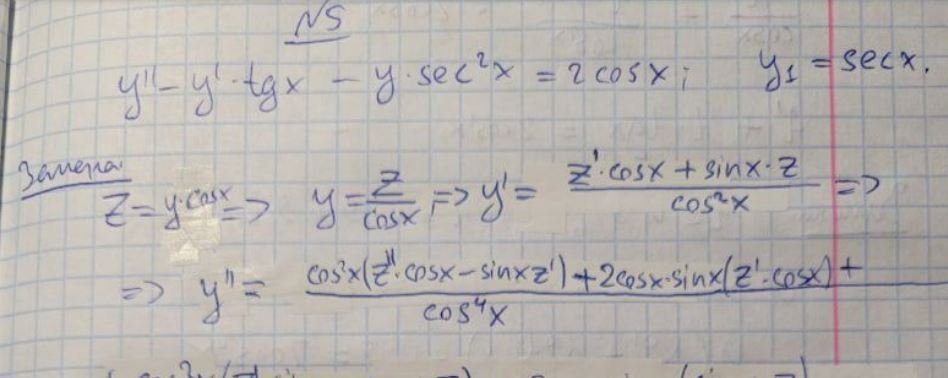 N5
y'' - y' · tgx - y · sec²x = 2cosx; y₁ = secx.
Замена
Z = y·cosx => y = z/cosx, => y' = (z'·cosx + sinx·z)/cos²x =>
=> y'' = (cos²x(z''·cosx - sinxz') + 2cosx·sinx(z'·cosx) +)/cos⁴x